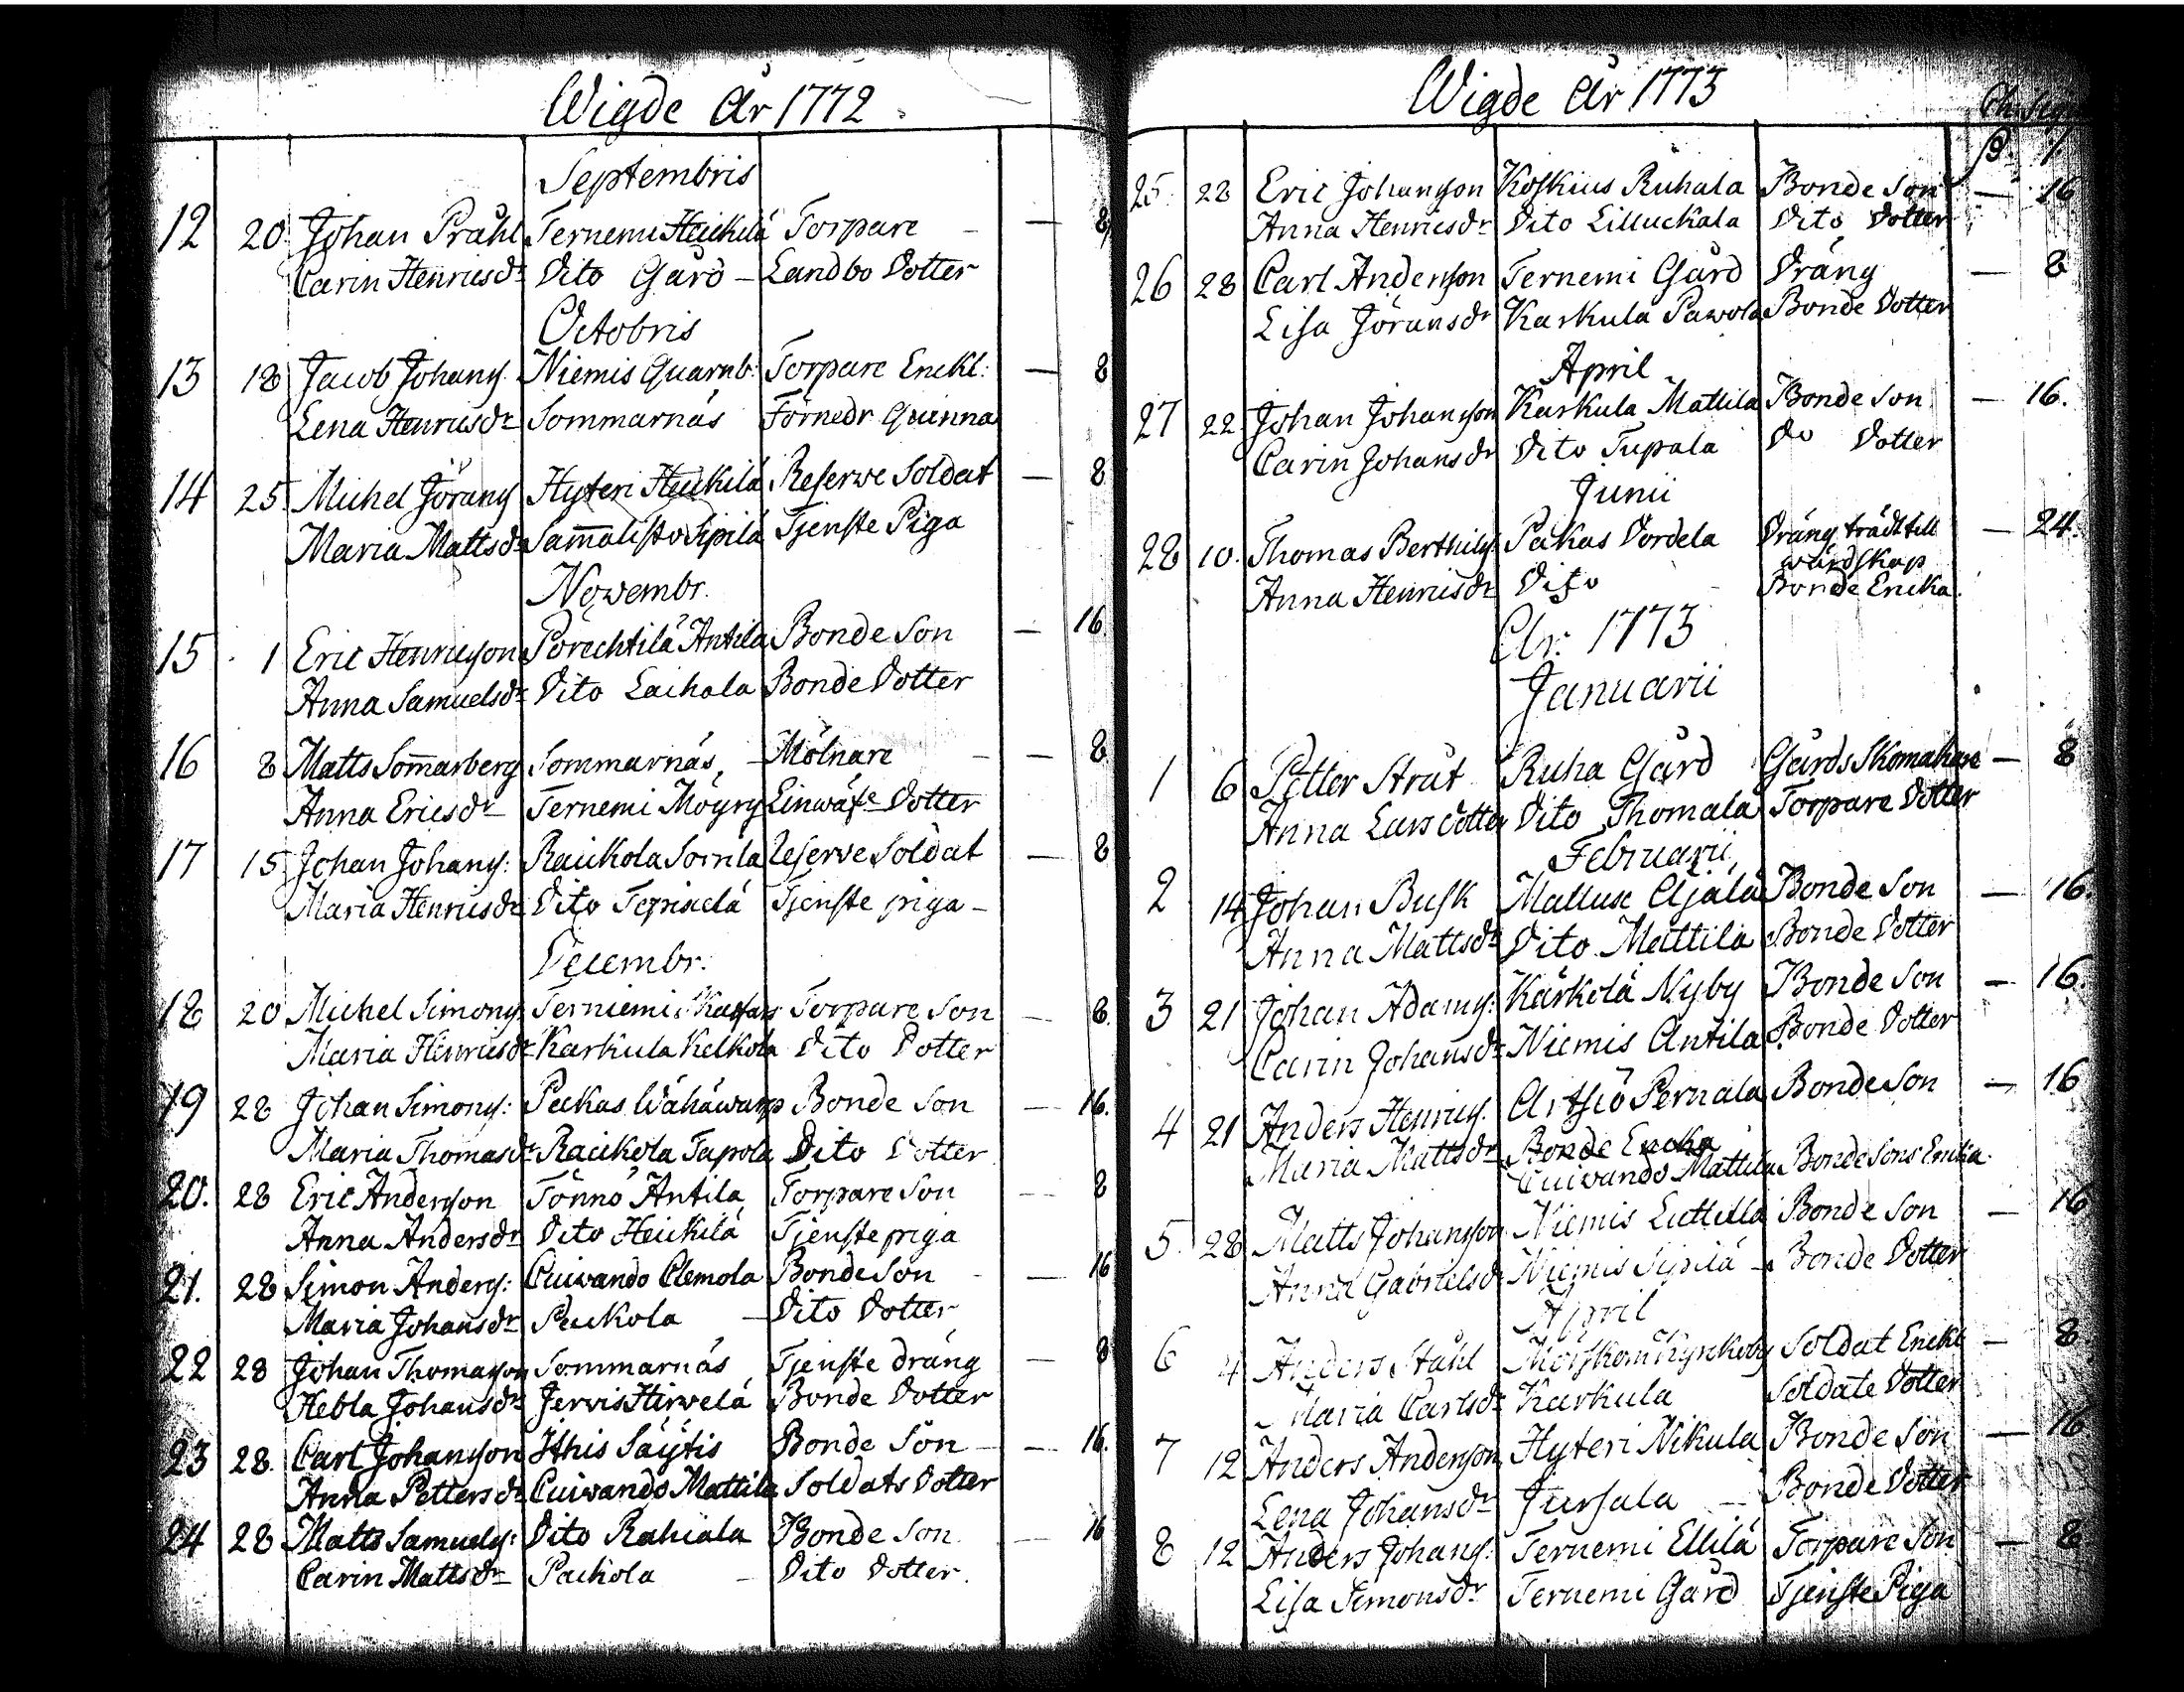 Wigde År 1772.
Septembris
12 20. Johan Pråhl Ternemi Heickilä Torpare — 8
Carin Henricsdr Dito Gård — Landbo Dotter
Octobris
13 18 Jacob Johans. Niemis Quarnb: Torpare Enckl: — 8
Lena Henricsdr Sommarnäs Förnedr Quinna
14 25. Michel Jörans Hyteri Heickilä Reserwe Soldat — 8
Maria Mattsdr Sam̄alisto Sipilä Tjenste Piga
Novembr.
15 1 Eric Henricson Porechtilä Antila Bonde Son — 16.
Anna Samuelsdr Dito Laihala Bonde Dotter
16 8 Matts Som̄arberg Sommarnäs, — Mölnare — 8
Anna Ericsdr Ternemi Möyry Dotter
17 15. Johan Johans: Raukola Reserve Soldat — 8
Maria Henricsdr Dito Tjenste piga —
Decembr.
18 20 Michel Simons Terniemi Torpare Son — 8.
Maria Henricsdr Karkula Kelkola Dito Dotter
19 28 Johan Simons: Peckas Wähäwarp Bonde Son — 16.
Maria Thomasdr Raukola Tapola Dito Dotter
20. 28 Eric Anderson Tönnö Antila Torpare Son — 8
Anna Andersdr Dito Heickilä Tjenste piga
21. 28 Simon Anders: Cuivando Clemola Bonde Son — 16
Maria Johansdr Peickola — Dito Dotter
22 28 Johan Thomason Sommarnäs Tjenste dräng — 8
Hebla Johansdr Jervis Hirwelä Bonde Dotter
23 28. Carl Johanson Ithis Säÿtis Bonde Son — 16.
Anna Pettersdr Cuivando Mattila Soldats Dotter
24 28 Matts Samuels: Dito Rahiala Bonde Son — 16
Carin Mattsdr Paikola — Dito Dotter.
Wigde År 1773
25. 28 Eric Johanson Koskius Ruhala Bonde Son — 16
Anna Henricsdr Dito Lilluckala Dito Dotter
26 28 Carl Anderson Ternemi Gård Dräng — 8
Lisa Jöransdr Karkula Pawola Bonde Dotter
April
27 22 Johan Johanson Karkula Mattila Bonde Son — 16.
Carin Johansdr Dito Tupala Do Dotter
Junii
28 10. Thomas Berthils: Pakas Dordela Dräng trädt till — 24.
wärdskap
Anna Henricsdr Dito Bonde Encka.
År: 1773
Januarii
1 6 Petter Strut Ruha Gård Gårds Skomakare — 8
Anna Larsdotter Dito Thomala Torpare Dotter
Februarii,
2 14 Johan Busk Mallusc Ajala Bonde Son — 16.
Anna Mattsdr Dito Mattila Bonde Dotter
3 21 Johan Adams: Kärkölä Nyby Bonde Son — 16.
Carin Johansdr Niemis Antila Bonde Dotter
4 21 Anders Henrics. Artsiö Pernala Bonde Son — 16
Maria Mattsdr Bonde Encka
Cuivando Mattila Bonde Sons Encka.
5. 28 Matts Johanson Niemis Luttilla Bonde Son — 16
Anna Gabrielsdr Niemis Sipilä — Bonde Dotter
April
6 4 Anders Ståhl Morskom Kyrckoby Soldat Enckl — 8.
Maria Carlsdr Karkula Soldate Dotter
7 12 Anders Anderson Hyteri Nikula Bonde Son — 16
Lena Johansdr Jursala — Bonde Dotter
8 12 Anders Johans: Ternemi Ellilä Torpare Son — 8
Lisa Simonsdr Ternemi Gård Tjenste Piga